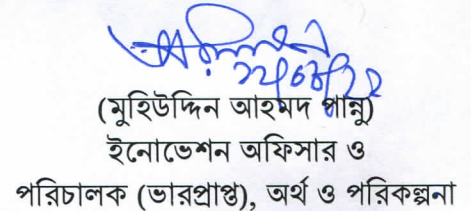 (মুহিউদ্দিন আহমদ পান্নু)
ইনোভেশন অফিসার ও
পরিচালক (ভারপ্রাপ্ত), অর্থ ও পরিকল্পনা